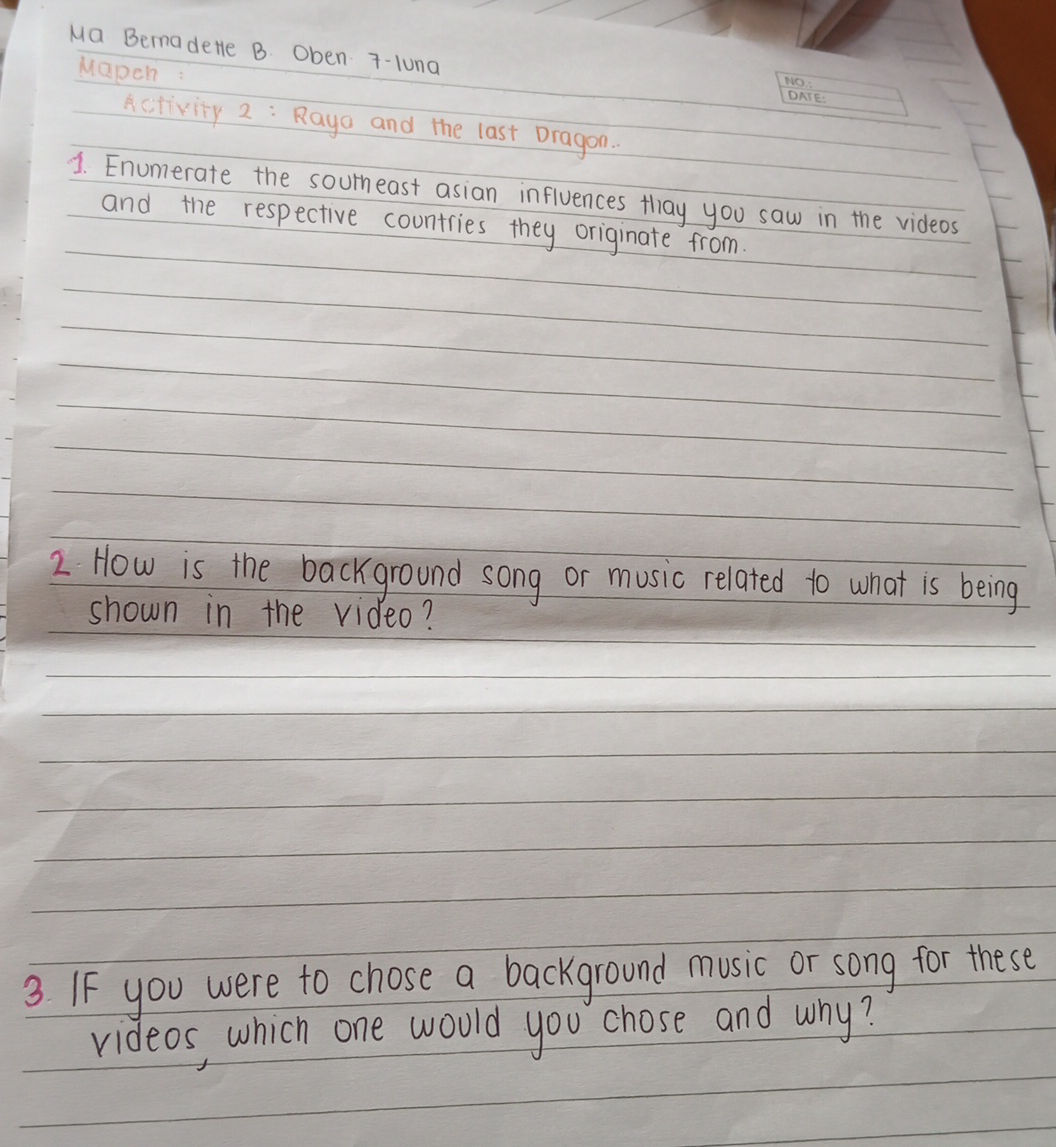 Ma Bernadette B. Oben. 7-luna
Mapeh :
NO.:
DATE:
Activity 2 : Raya and the last Dragon..
1. Enumerate the southeast asian influences thay you saw in the videos
and the respective countries they originate from.
2. How is the background song or music related to what is being
shown in the video?
3. IF you were to chose a background music or song for these
videos, which one would you chose and why?